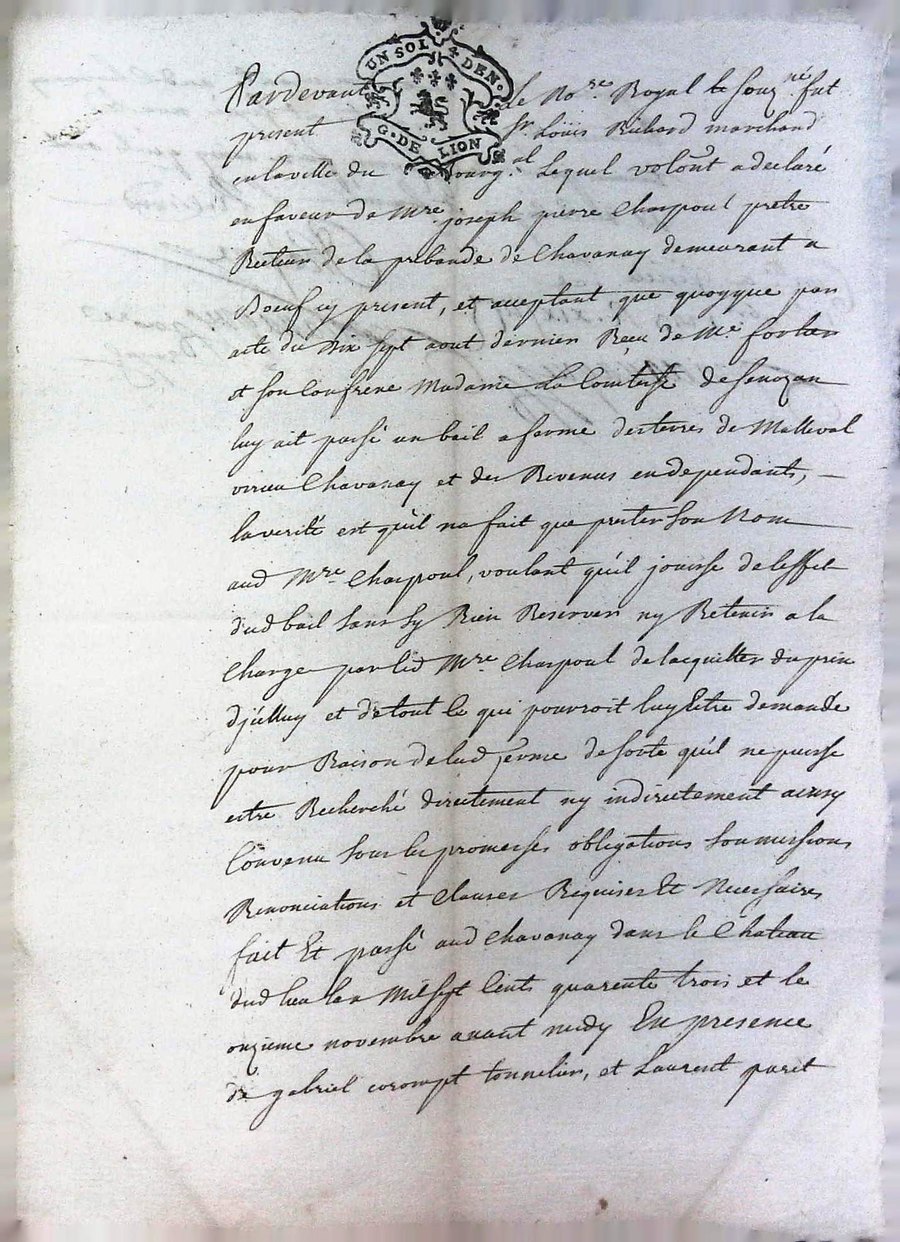 UN SOL 4 DEN.
G. DE LION
Pardevant Le No.re Royal le souz.né fut
present Sr Louis Richard marchand
en la ville du Bourg.al Lequel volont.t a declaré
en faveur de Mre joseph pierre Charpoul pretre
Recteur de la prebande de Chavanay demeurant a
Boeuf cy present, et acceptant, que quoyque par
acte du dix sept aout dernier Receu de Me fortier
et son Confrere Madame La Comtesse de Senozan
luy ait passé un bail a ferme des terres de Malleval
virieu Chavanay et des Revenus en dependants,
la verité est qu'il na fait que preter son Nom
aud Mre Charpoul, voulant qu'il jouisse de leffet
dud bail sans sy Rien Reserver ny Retenir a la
Charge par led Mre Charpoul de lacquitter du prix
d'jcelluy et de tout ce qui pourroit luy Etre demandé
pour Raison de lad ferme de sorte qu'il ne puisse
estre Recherché directement ny indirectement ainsy
Convenu sous les promesses obligations soumissions
Renonciations et Clauses Requises Et Necessaires
fait Et passé aud Chavanay dans le Chateau
dud lieu lan Mil sept Cents quarente trois et le
onzieme novembre avant midy En presence
de gabriel corompt tonnelier, et Laurent paret